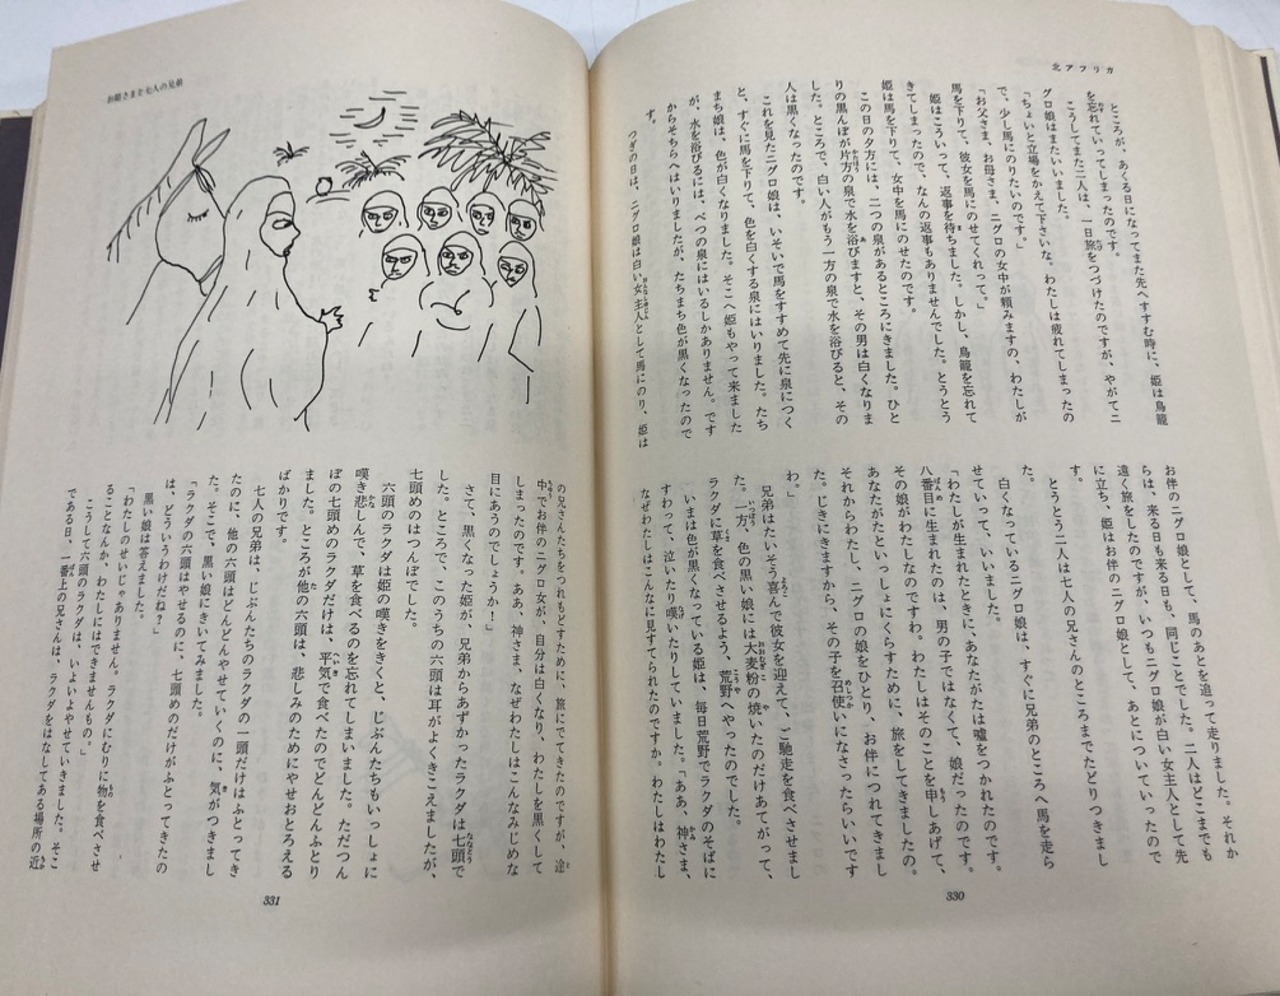 北アフリカ
ところが、あくる日になってまた先へすすむ時に、姫は鳥籠
を忘れていってしまったのです。
こうしてまた二人は、一日旅をつづけたのですが、やがてニ
グロ娘はまたいいました。
「ちょいと立場をかえて下さいな。わたしは疲れてしまったの
で、少し馬にのりたいのです。」
「お父さま、お母さま、ニグロの女中が頼みますの、わたしが
馬を下りて、彼女を馬にのせてくれって。」
姫はこういって、返事を待ちました。しかし、鳥籠を忘れて
きてしまったので、なんの返事もありませんでした。とうとう
姫は馬を下りて、女中を馬にのせたのです。
この日の夕方には、二つの泉があるところにきました。ひと
りの黒んぼが片方の泉で水を浴びますと、その男は白くなりま
した。ところで、白い人がもう一方の泉で水を浴びると、その
人は黒くなったのです。
これを見たニグロ娘は、いそいで馬をすすめて先に泉につく
と、すぐに馬を下りて、色を白くする泉にはいりました。たち
まち娘は、色が白くなりました。そこへ姫もやって来ました
が、水を浴びるには、べつの泉にはいるしかありません。です
からそちらへはいりましたが、たちまち色が黒くなったので
す。
つぎの日は、ニグロ娘は白い女主人として馬にのり、姫は
お伴のニグロ娘として、馬のあとを追って走りました。それか
らは、来る日も来る日も、同じことでした。二人はどこまでも
遠く旅をしたのですが、いつもニグロ娘が白い女主人として先
に立ち、姫はお伴のニグロ娘として、あとについていったので
す。
とうとう二人は七人の兄さんのところまでたどりつきまし
た。
白くなっているニグロ娘は、すぐに兄弟のところへ馬を走ら
せていって、いいました。
「わたしが生まれたときに、あなたがたは嘘をつかれたのです。
八番目に生まれたのは、男の子ではなくて、娘だったのです。
その娘がわたしなのですわ。わたしはそのことを申しあげて、
あなたがたといっしょにくらすために、旅をしてきましたの。
それからわたし、ニグロの娘をひとり、お伴につれてきまし
た。じきにきますから、その子を召使いになさったらいいです
わ。」
兄弟はたいそう喜んで彼女を迎えて、ご馳走を食べさせまし
た。一方、色の黒い娘には大麦粉の焼いたのだけあてがって、
ラクダに草を食べさせるよう、荒野へやったのでした。
いまは色が黒くなっている姫は、毎日荒野でラクダのそばに
すわって、泣いたり嘆いたりしていました。「ああ、神さま、
なぜわたしはこんなに見すてられたのですか。わたしはわたし
330
お姫さまと七人の兄弟
の兄さんたちをつれもどすために、旅にでてきたのですが、途
中でお伴のニグロ女が、自分は白くなり、わたしを黒くして
しまったのです。ああ、神さま、なぜわたしはこんなみじめな
目にあうのでしょうか！」
さて、黒くなった姫が、兄弟からあずかったラクダは七頭で
した。ところで、このうちの六頭は耳がよくきこえましたが、
七頭めのはつんぼでした。
六頭のラクダは姫の嘆きをきくと、じぶんたちもいっしょに
嘆き悲しんで、草を食べるのを忘れてしまいました。ただつん
ぼの七頭めのラクダだけは、平気で食べたのでどんどんふとり
ました。ところが他の六頭は、悲しみのためにやせおとろえる
ばかりです。
七人の兄弟は、じぶんたちのラクダの一頭だけはふとってき
たのに、他の六頭はどんどんやせていくのに、気がつきまし
た。そこで、黒い娘にきいてみました。
「ラクダの六頭はやせるのに、七頭めのだけがふとってきたの
は、どういうわけだね？」
黒い娘は答えました。
「わたしのせいじゃありません。ラクダにむりに物を食べさせ
ることなんか、わたしにはできませんもの。」
こうして六頭のラクダは、いよいよやせていきました。そこ
である日、一番上の兄さんは、ラクダをはなしてある場所の近
331